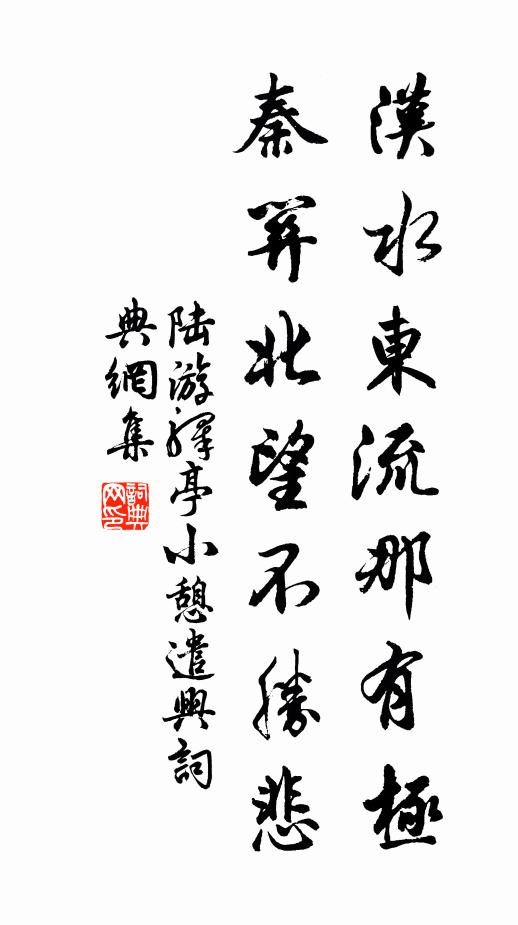 漢水東流那有極
秦關北望不勝悲
陸游驛亭小憩遣興詞
典網集
詞典网印